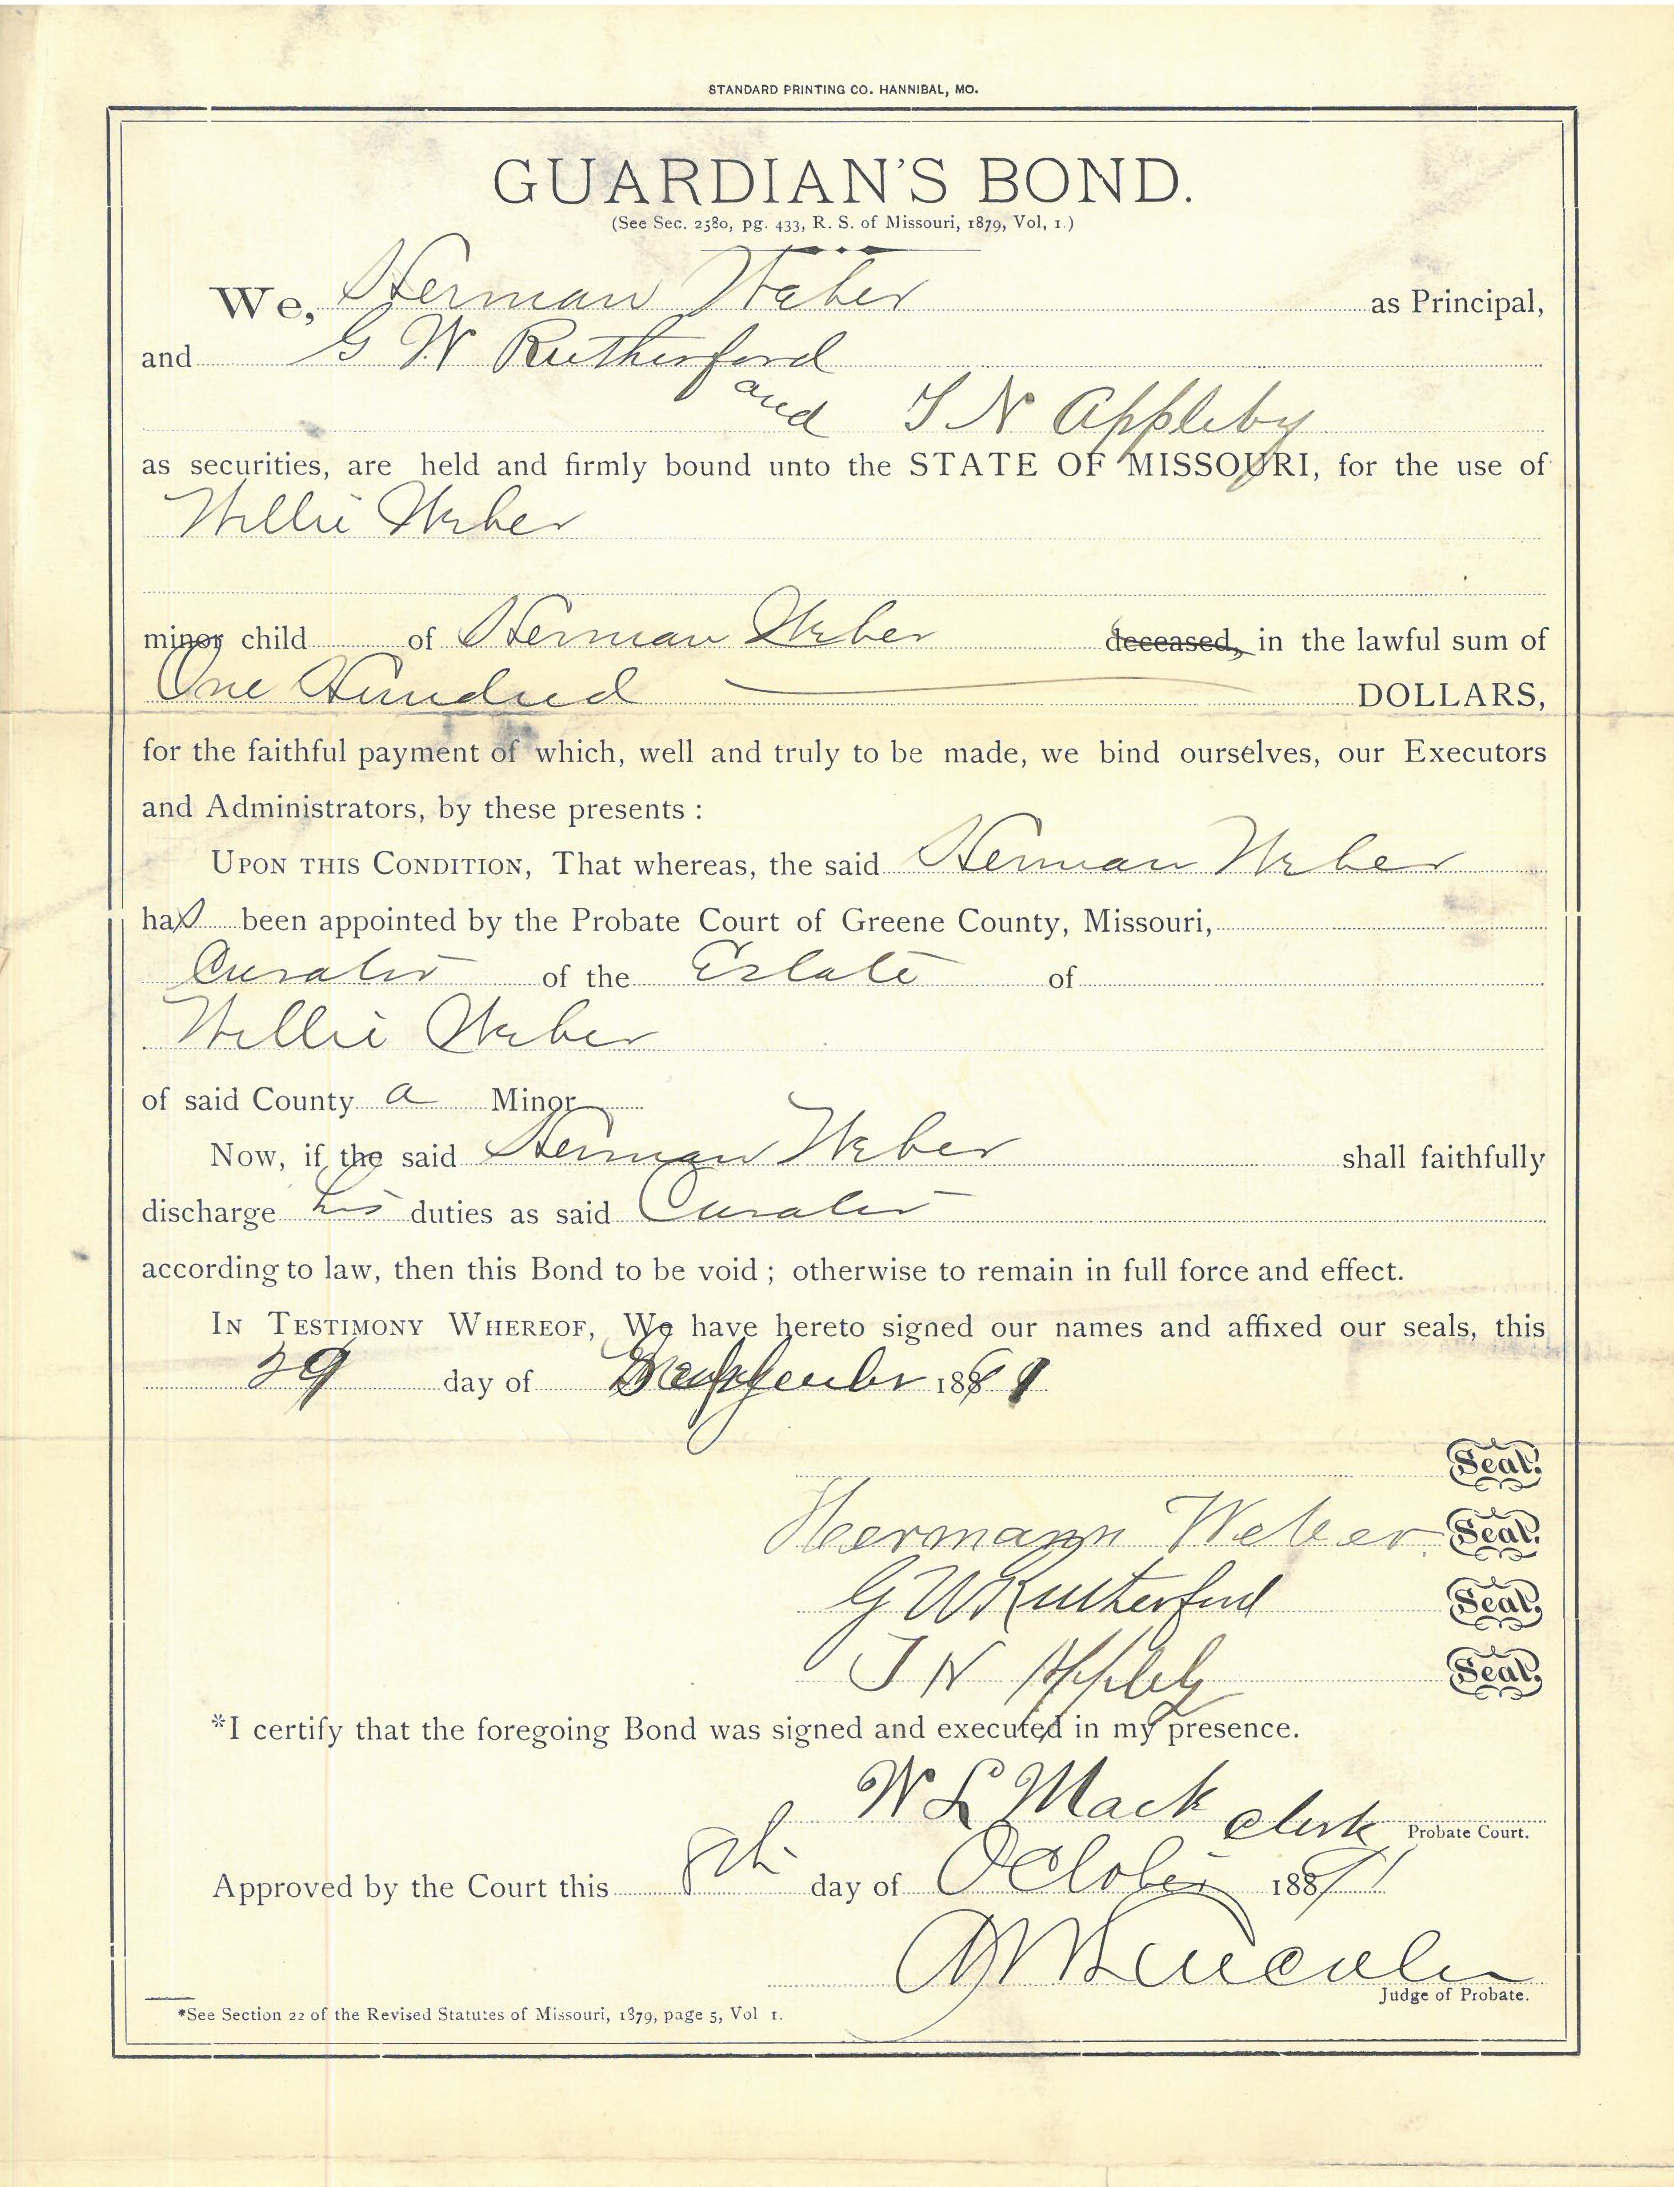 STANDARD PRINTING CO. HANNIBAL, MO.
GUARDIAN'S BOND.
(See Sec. 2580, pg. 433, R. S. of Missouri, 1879, Vol, 1.)
We, Herman Weber as Principal,
and G W Rutherford
and T N Appleby
as securities, are held and firmly bound unto the STATE OF MISSOURI, for the use of
Willie Weber
minor child of Herman Weber deceased, in the lawful sum of
One Hundred DOLLARS,
for the faithful payment of which, well and truly to be made, we bind ourselves, our Executors
and Administrators, by these presents :
UPON THIS CONDITION, That whereas, the said Herman Weber
has been appointed by the Probate Court of Greene County, Missouri,
Curator of the Estate of
Willie Weber
of said County a Minor
Now, if the said Herman Weber shall faithfully
discharge his duties as said Curator
according to law, then this Bond to be void ; otherwise to remain in full force and effect.
IN TESTIMONY WHEREOF, We have hereto signed our names and affixed our seals, this
29 day of September 1891
Seal.
Hermann Weber Seal.
G W Rutherford Seal.
T N Appleby Seal.
*I certify that the foregoing Bond was signed and executed in my presence.
W L Mack Clerk Probate Court.
Approved by the Court this 8th day of October 1891
Lincoln
Judge of Probate.
*See Section 22 of the Revised Statutes of Missouri, 1879, page 5, Vol 1.